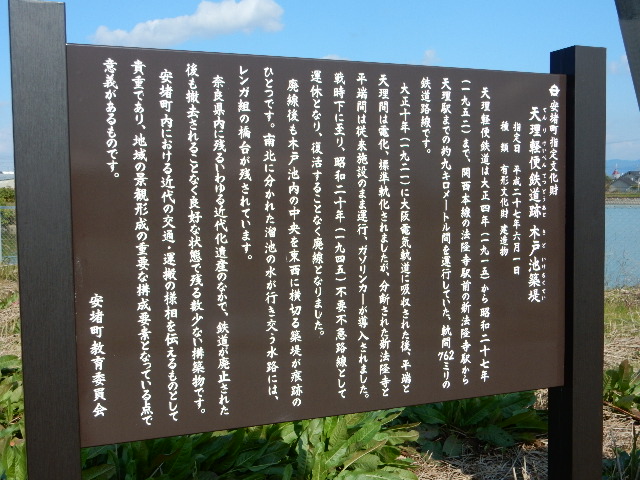 安堵町指定文化財
てんりけいべんてつどうあと きどいけちくてい
天理軽便鉄道跡 木戸池築堤
指定日 平成二十七年六月一日
種類 有形文化財 建造物
天理軽便鉄道は大正四年(一九一五)から昭和二十七年
(一九五二)まで、関西本線の法隆寺駅前の新法隆寺駅から
天理駅までの約九キロメートル間を運行していた、軌間762ミリの
鉄道路線です。
大正十年(一九二一)に大阪電気軌道に吸収された後、平端と
天理間は電化、標準軌化されましたが、分断された新法隆寺と
平端間は従来施設のまま運行、ガソリンカーが導入されました。
戦時下に至り、昭和二十年(一九四五)不要不急路線として
運休となり、復活することなく廃線となりました。
廃線後も木戸池内の中央を東西に横切る築堤が痕跡の
ひとつです。南北に分かれた溜池の水が行き交う水路には、
レンガ組の橋台が残されています。
奈良県内に残るいわゆる近代化遺産のなかで、鉄道が廃止された
後も撤去されることなく良好な状態で残る数少ない構築物です。
安堵町内における近代の交通・運搬の様相を伝えるものとして
貴重であり、地域の景観形成の重要な構成要素となっている点で
意義があるものです。
安堵町教育委員会